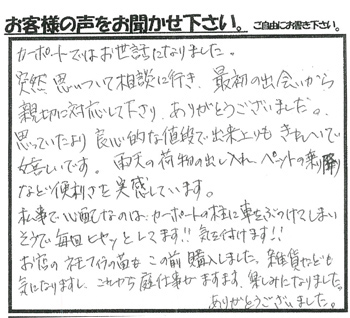 お客様の声をお聞かせ下さい。 ご自由にお書き下さい。
カーポートではお世話になりました。
突然思いついて相談に行き、最初の出会いから
親切に対応して下さり、ありがとうございました。
思っていたより良心的な値段で出来上りもきれいで
嬉しいです。雨天の荷物の出し入れ、ペットの乗り降り
など便利さを実感しています。
私事で心配なのは、カーポートの柱に車をぶつけてしまい
そうで毎回ヒヤッとしてます!! 気を付けます!!
お店の の苗をこの前購入しました。雑貨なども
気になりますし、これから庭仕事がますます、楽しみになりました。
ありがとうございました。